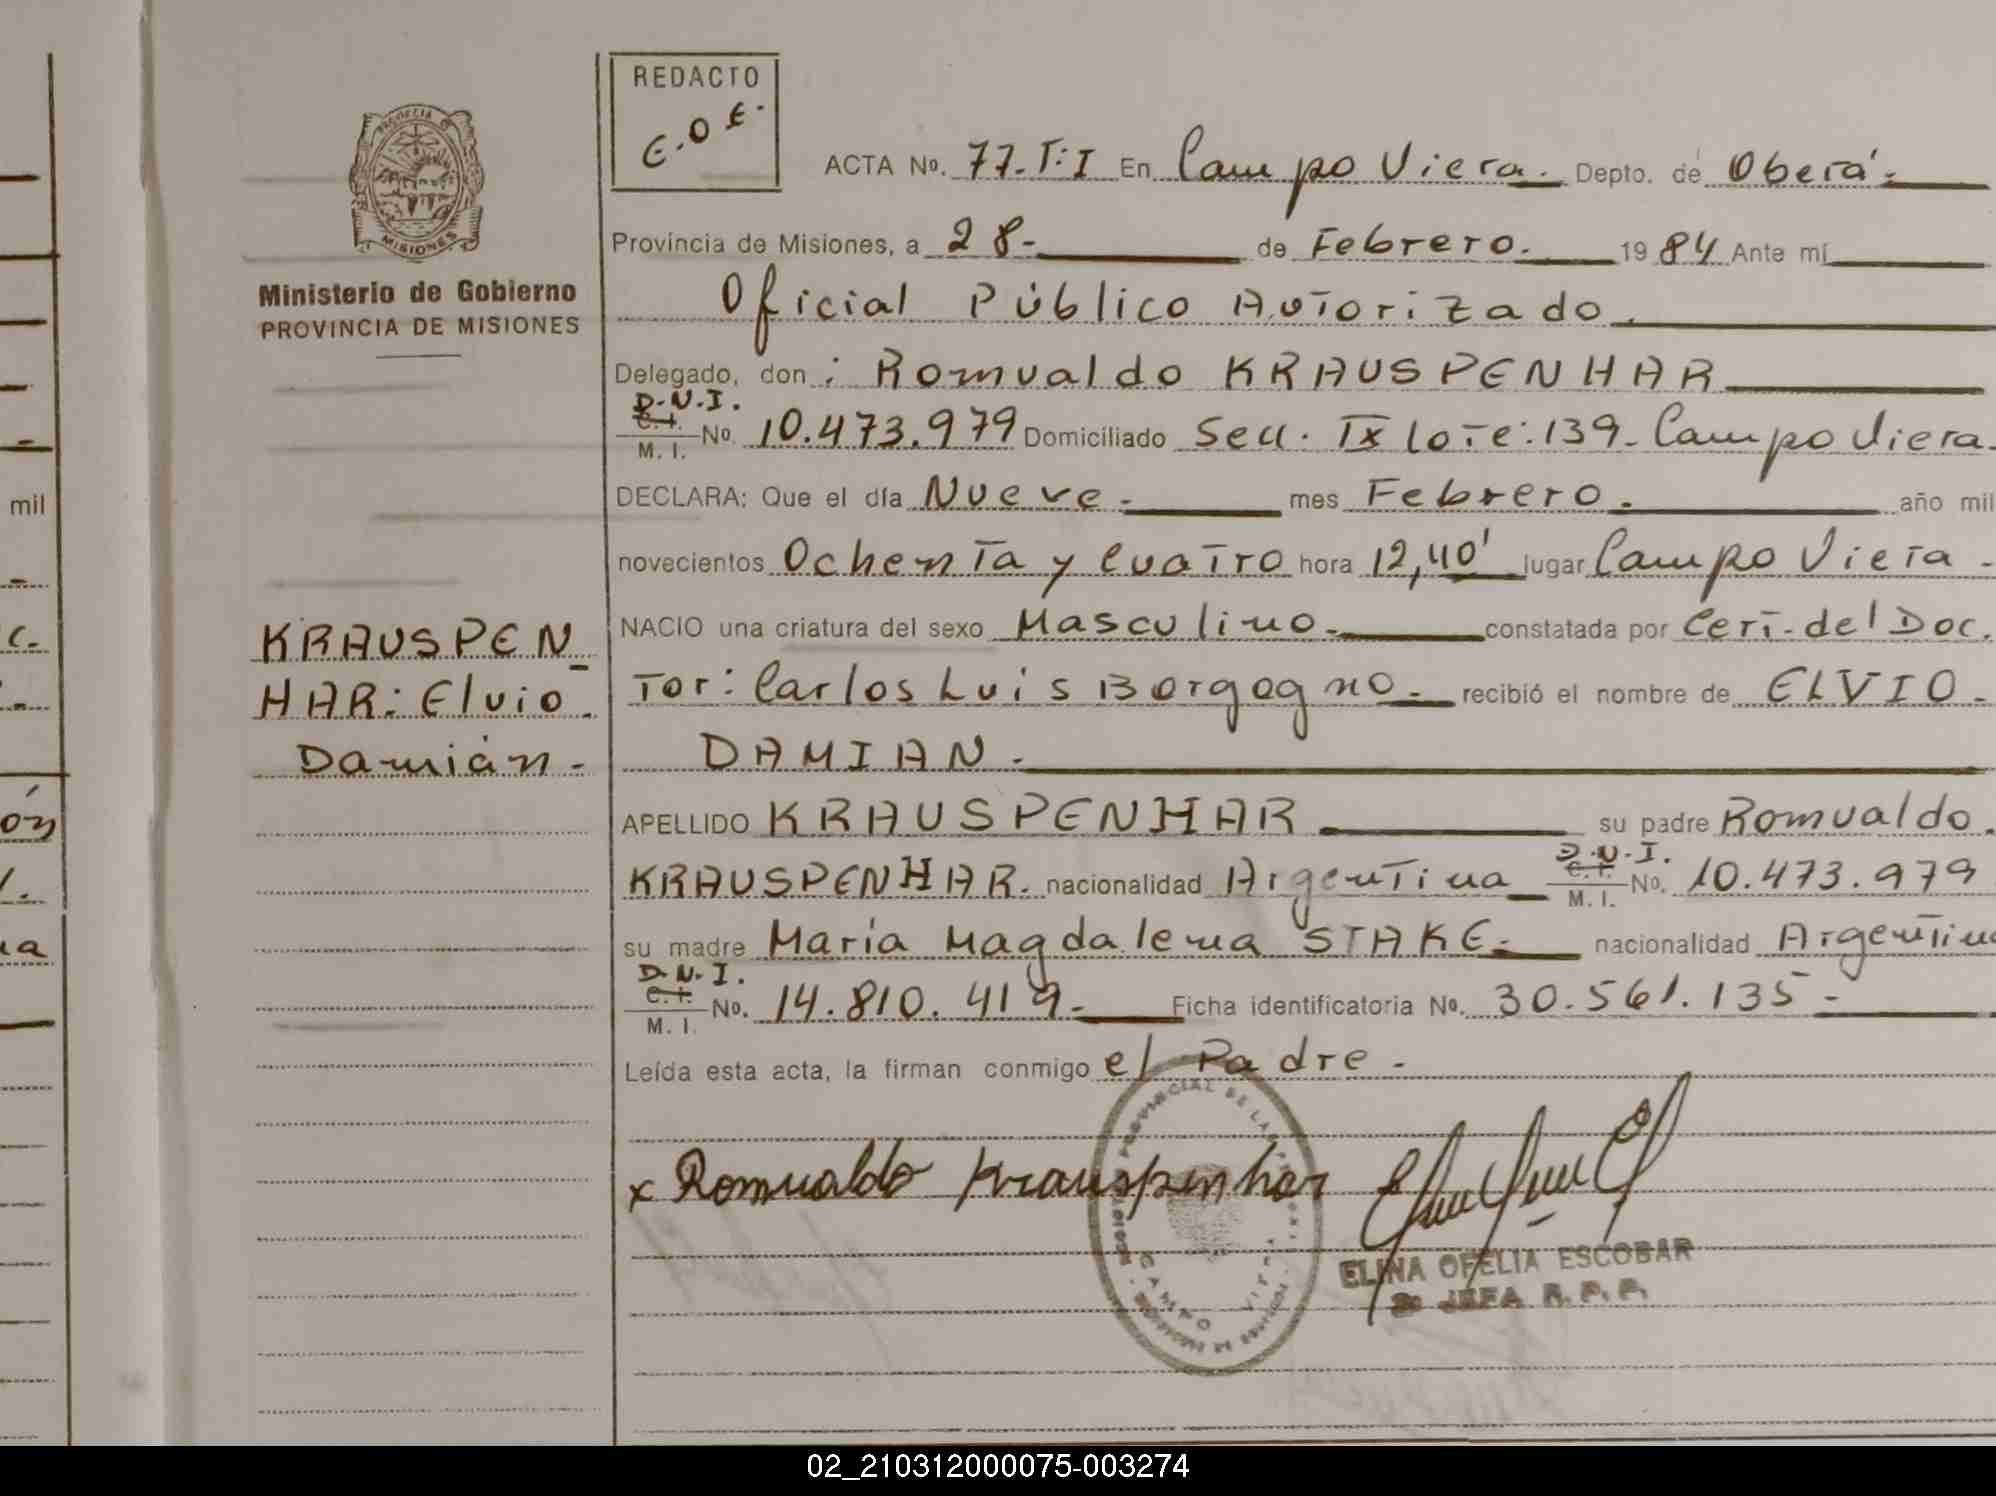 REDACTO
E.O.E.
ACTA No. 77.T:I En Campo Viera. Depto. de Oberá.
Provincia de Misiones, a 28.- de Febrero. 1984 Ante mí
Oficial Público Autorizado.
Delegado, don: Romualdo KRAUSPENHAR
D.N.I.
C.I.
M.I. No. 10.473.979 Domiciliado Secc. IX lote: 139. Campo Viera.
DECLARA: Que el día Nueve.- mes Febrero. año mil
novecientos Ochenta y Cuatro hora 12,40' lugar Campo Viera.
NACIO una criatura del sexo Masculino. constatada por Cert. del Doc.
tor: Carlos Luis Borgogno. recibió el nombre de ELVIO.
DAMIAN.
APELLIDO KRAUSPENHAR su padre Romualdo.
KRAUSPENHAR. nacionalidad Argentina D.N.I.
C.I.
M.I. No. 10.473.979
su madre María Magdalena STAKE. nacionalidad Argentina
D.N.I.
C.I.
M.I. No. 14.810.419.- Ficha identificatoria No. 30.561.135-
Leída esta acta, la firman conmigo el Padre.-
x Romualdo Krauspenhar
ELINA OFELIA ESCOBAR
JEFA R.P.P.
CAMPO VIERA
PROVINCIA DE MISIONES
Ministerio de Gobierno
PROVINCIA DE MISIONES
KRAUSPEN-
HAR: Elvio.
Damián.-
mil
c.
ón
02_210312000075-003274